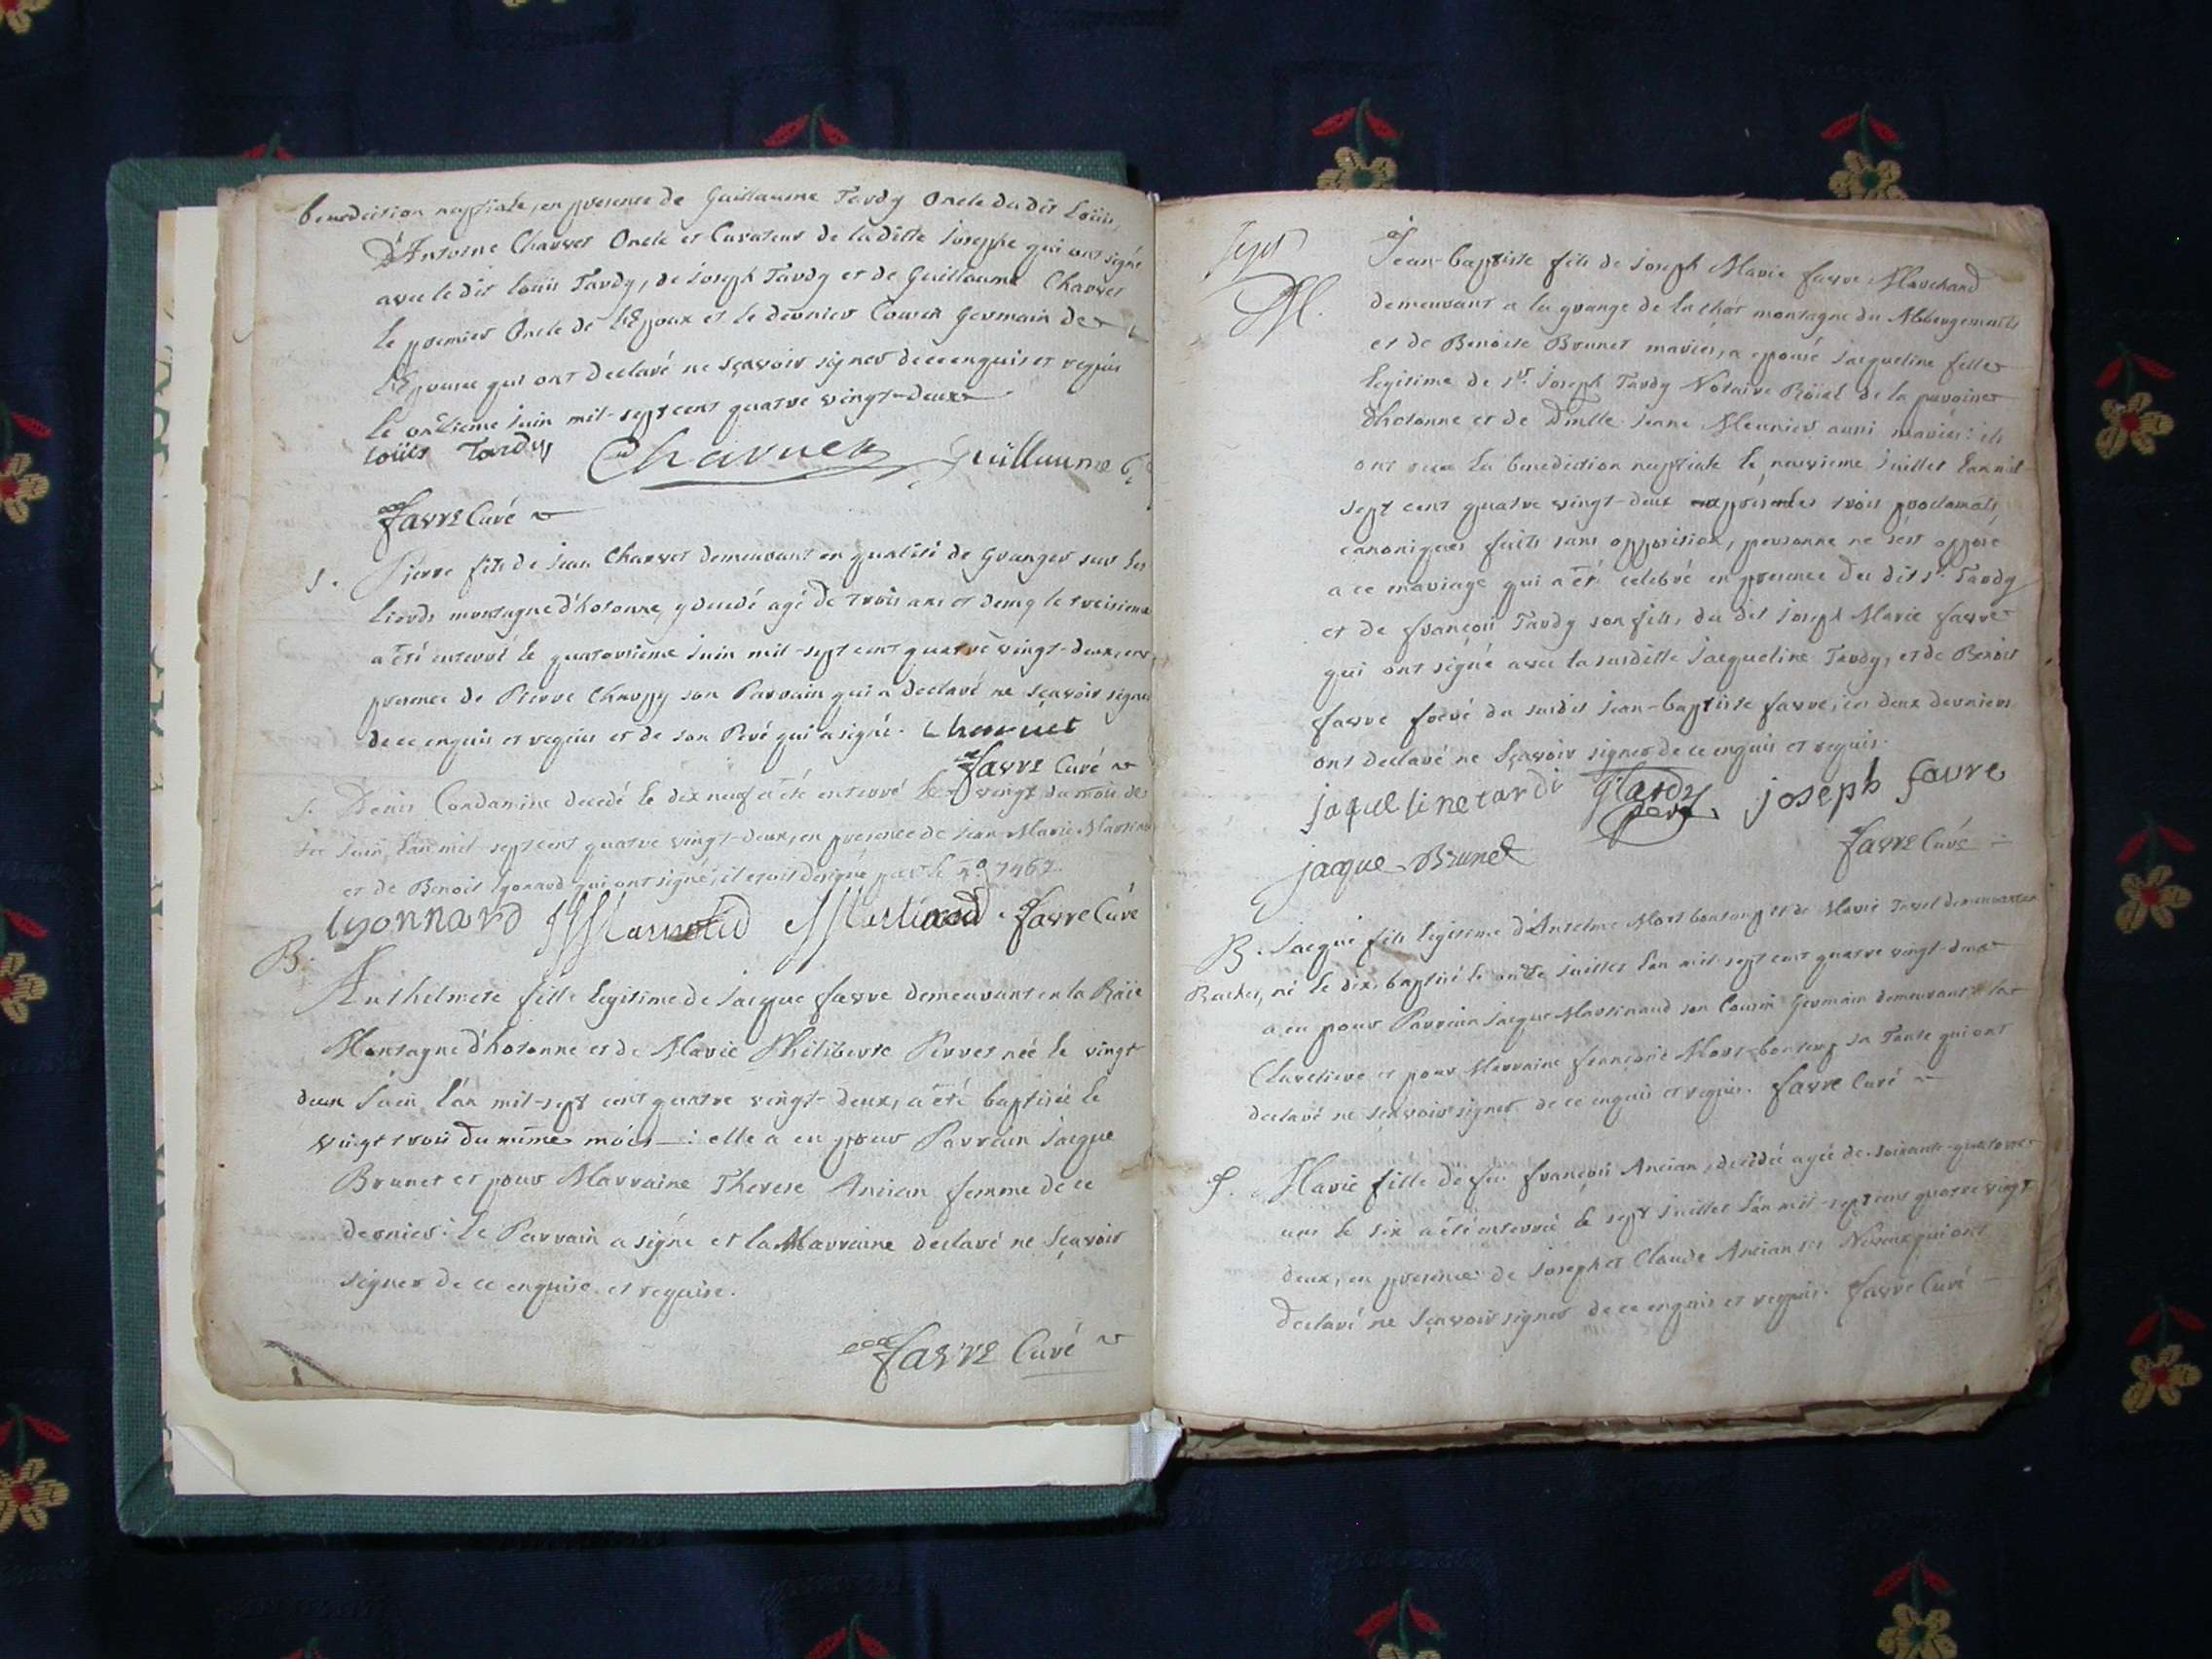 benediction nuptiale, en presence de Guillaume Tardy Oncle du dit Loüis,
D'Antoine Charvet Oncle et Curateur de la ditte Josephe qui ont signé
avec le dit Loüis Tardy, de Joseph Tardy et de Guillaume Charvet
le premier Oncle de l'Epoux et le dernier Cousin Germain de
l'Epouse qui ont declaré ne sçavoir signer de ce enquis et requis
le onzieme Juin mil-sept cent quatre vingt-deux
loüis Tardy Charvet Guillaume
favre Curé
S. Pierre fils de Jean Charvet demeurant en qualité de Granger sur les
montagne d'hotonne, y decedé agé de trois ans et demy le treisieme
a été enterré le quatorsieme Juin mil-sept cent quatre vingt-deux, en
presence de Pierre Chapuy son Parrain qui a declaré ne sçavoir signer
de ce enquis et requis et de son Peré qui a signé. Charvet
favre Curé
S. Denis Condamine decedé le dix neuf a été enterré le vingt du mois de
Juin, l'an mil-sept cent quatre vingt-deux, en presence de Jean Marie Martinod
et de Benoit lyonard qui ont signé, il etoit designé par le n.º 7467
lyonnard Martinod favre Curé
B.
Anthelmete fille legitime de Jacque favre demeurant en la Raïe
Montagne d'hotonne et de Marie Philiberte Perret née le vingt
deux Juin, l'an mil-sept cent quatre vingt-deux, a été baptisée le
vingt trois du même mois : elle a eu pour Parrain Jacque
Brunet et pour Marraine Therese Ancian femme de ce
dernier : le Parrain a signé et la Marraine declaré ne sçavoir
signer de ce enquise et requise.
favre Curé
Sept
M.
Jean-baptiste fils de Joseph Marie favre Marchand
demeurant a la grange de la montagne du Abbergements
et de Benoite Brunet mariés, a epousé Jacqueline fille
legitime de Sr. Joseph Tardy Notaire Roïal de la paroisse
d'hotonne et de Dmlle Jeane Meunier aussi mariés : ils
ont reçu la benediction nuptiale le neuvieme Juillet l'an mil
sept cent quatre vingt-deux trois proclamats
canoniques faits sans opposition, personne ne s'est opposé
a ce mariage qui a été celebré en presence du dit Sr. Tardy
et de françois Tardy son fils, du dit Joseph Marie favre
qui ont signé avec la susditte Jacqueline Tardy, et de Benoit
favre freré du susdit Jean-baptiste favre, ces deux derniers
ont declaré ne sçavoir signer de ce enquis et requis.
jaqueline tardi Tardy joseph favre
jaque Brunet favre Curé
B. Jacque fils legitime d'Antelme Mort bontemps et de Marie Tavel demeurant
né le dix, baptisé le onze Juillet l'an mil-sept cent quatre vingt-deux
a eu pour Parrain Jacque Martinaud son Cousin Germain demeurant a la
et pour Marraine françoise Mort-bontemps sa Tante qui ont
declaré ne sçavoir signer de ce enquis et requis. favre Curé
S. Marie fille de feu françois Ancian, decedée agée de soixante-quatorze
ans le six a été enterrée le sept Juillet l'an mil-sept cent quatre vingt
deux, en presence de Joseph et Claude Ancian ses Neveux qui ont
declaré ne sçavoir signer de ce enquis et requis. favre Curé